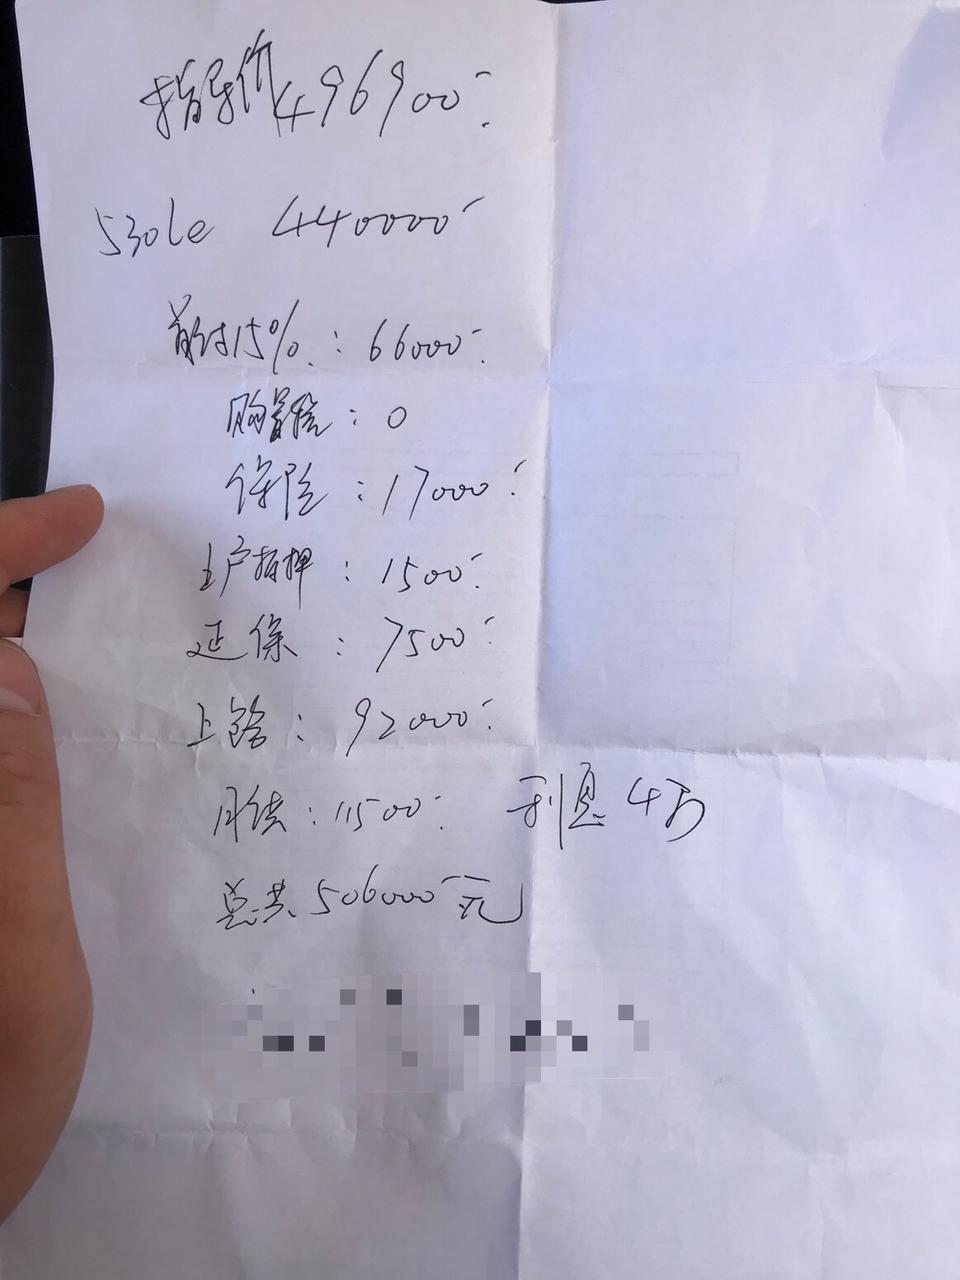 指导价496900
530le 440000
首付15%:66000
购置税:0
保险:17000
上户抵押:1500
延保:7500
上路:92000
月供:11500 利息4万
总共506000元